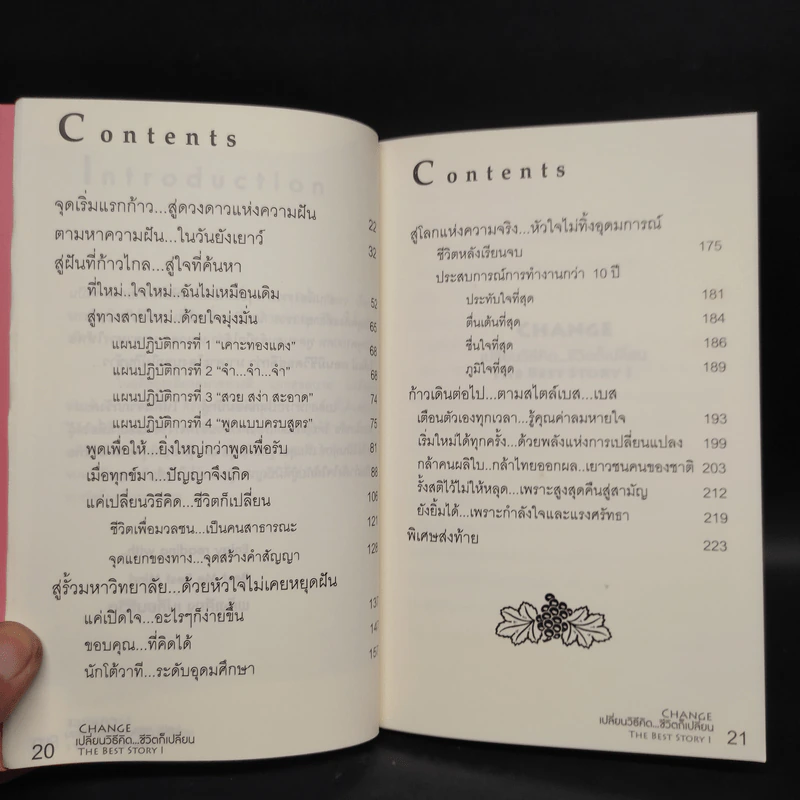 Contents
จุดเริ่มแรกก้าว...สู่ดวงดาวแห่งความฝัน 22
ตามหาความฝัน...ในวันยังเยาว์ 32
สู่ฝันที่ก้าวไกล...สู่ใจที่ค้นหา
ที่ใหม่..ใจใหม่..ฉันไม่เหมือนเดิม 52
สู่ทางสายใหม่..ด้วยใจมุ่งมั่น 65
แผนปฏิบัติการที่ 1 "เคาะทองแดง" 68
แผนปฏิบัติการที่ 2 "จำ...จำ...จำ" 68
แผนปฏิบัติการที่ 3 "สวย สง่า สะอาด" 74
แผนปฏิบัติการที่ 4 "พูดแบบครบสูตร" 75
พูดเพื่อให้..ยิ่งใหญ่กว่าพูดเพื่อรับ 81
เมื่อทุกข์มา...ปัญญาจึงเกิด 88
แค่เปลี่ยนวิธีคิด...ชีวิตก็เปลี่ยน 106
ชีวิตเพื่อมวลชน...เป็นคนสาธารณะ 121
จุดแยกของทาง...จุดสร้างคำสัญญา 128
สู่รั้วมหาวิทยาลัย...ด้วยหัวใจไม่เคยหยุดฝัน
แค่เปิดใจ...อะไรๆก็ง่ายขึ้น
ขอบคุณ...ที่คิดได้
นักโต้วาที...ระดับอุดมศึกษา
20
CHANGE
เปลี่ยนวิธีคิด...ชีวิตก็เปลี่ยน
THE BEST STORY I
Contents
สู่โลกแห่งความจริง...หัวใจไม่ทิ้งอุดมการณ์
ชีวิตหลังเรียนจบ 175
ประสบการณ์การทำงานกว่า 10 ปี
ประทับใจที่สุด 181
ตื่นเต้นที่สุด 184
ชื่นใจที่สุด 186
ภูมิใจที่สุด 189
ก้าวเดินต่อไป...ตามสไตล์เบส...เบส
เตือนตัวเองทุกเวลา...รู้คุณค่าลมหายใจ 193
เริ่มใหม่ได้ทุกครั้ง..ด้วยพลังแห่งการเปลี่ยนแปลง 199
กล้าคนผลิใบ..กล้าไทยออกผล..เยาวชนคนของชาติ 203
รั้งสติไว้ไม่ให้หลุด...เพราะสูงสุดคืนสู่สามัญ 212
ยังยิ้มได้...เพราะกำลังใจและแรงศรัทธา 219
พิเศษส่งท้าย 223
CHANGE
เปลี่ยนวิธีคิด...ชีวิตก็เปลี่ยน
THE BEST STORY I
21